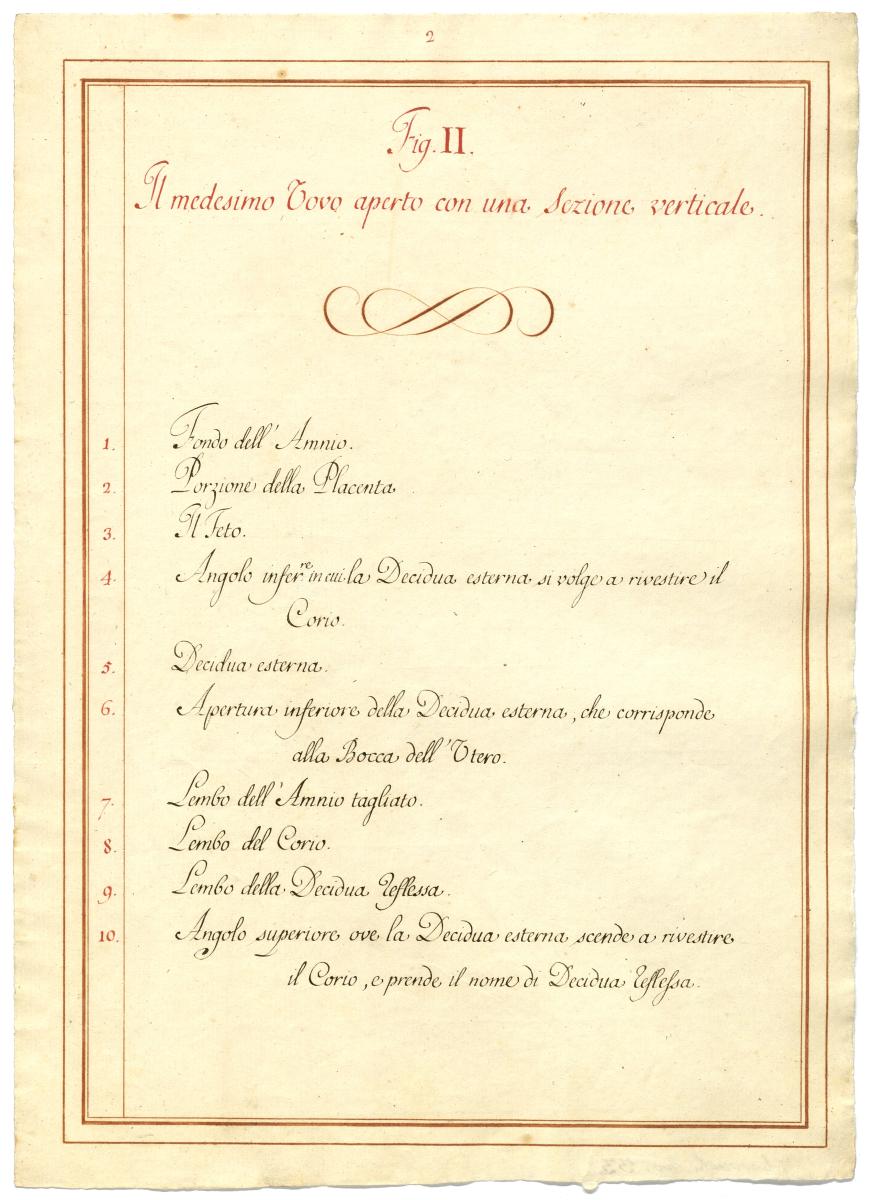 2
Fig. II.
Il medesimo Vovo aperto con una Sezione verticale.
1. Fondo dell' Amnio.
2. Porzione della Placenta
3. Il Feto.
4. Angolo infer.re in cui la Decidua esterna si volge a rivestire il
Corio.
5. Decidua esterna.
6. Apertura inferiore della Decidua esterna, che corrisponde
alla Bocca dell' Vtero.
7. Lembo dell' Amnio tagliato.
8. Lembo del Corio.
9. Lembo della Decidua Reflessa.
10. Angolo superiore ove la Decidua esterna scende a rivestire
il Corio, e prende il nome di Decidua Reflessa.